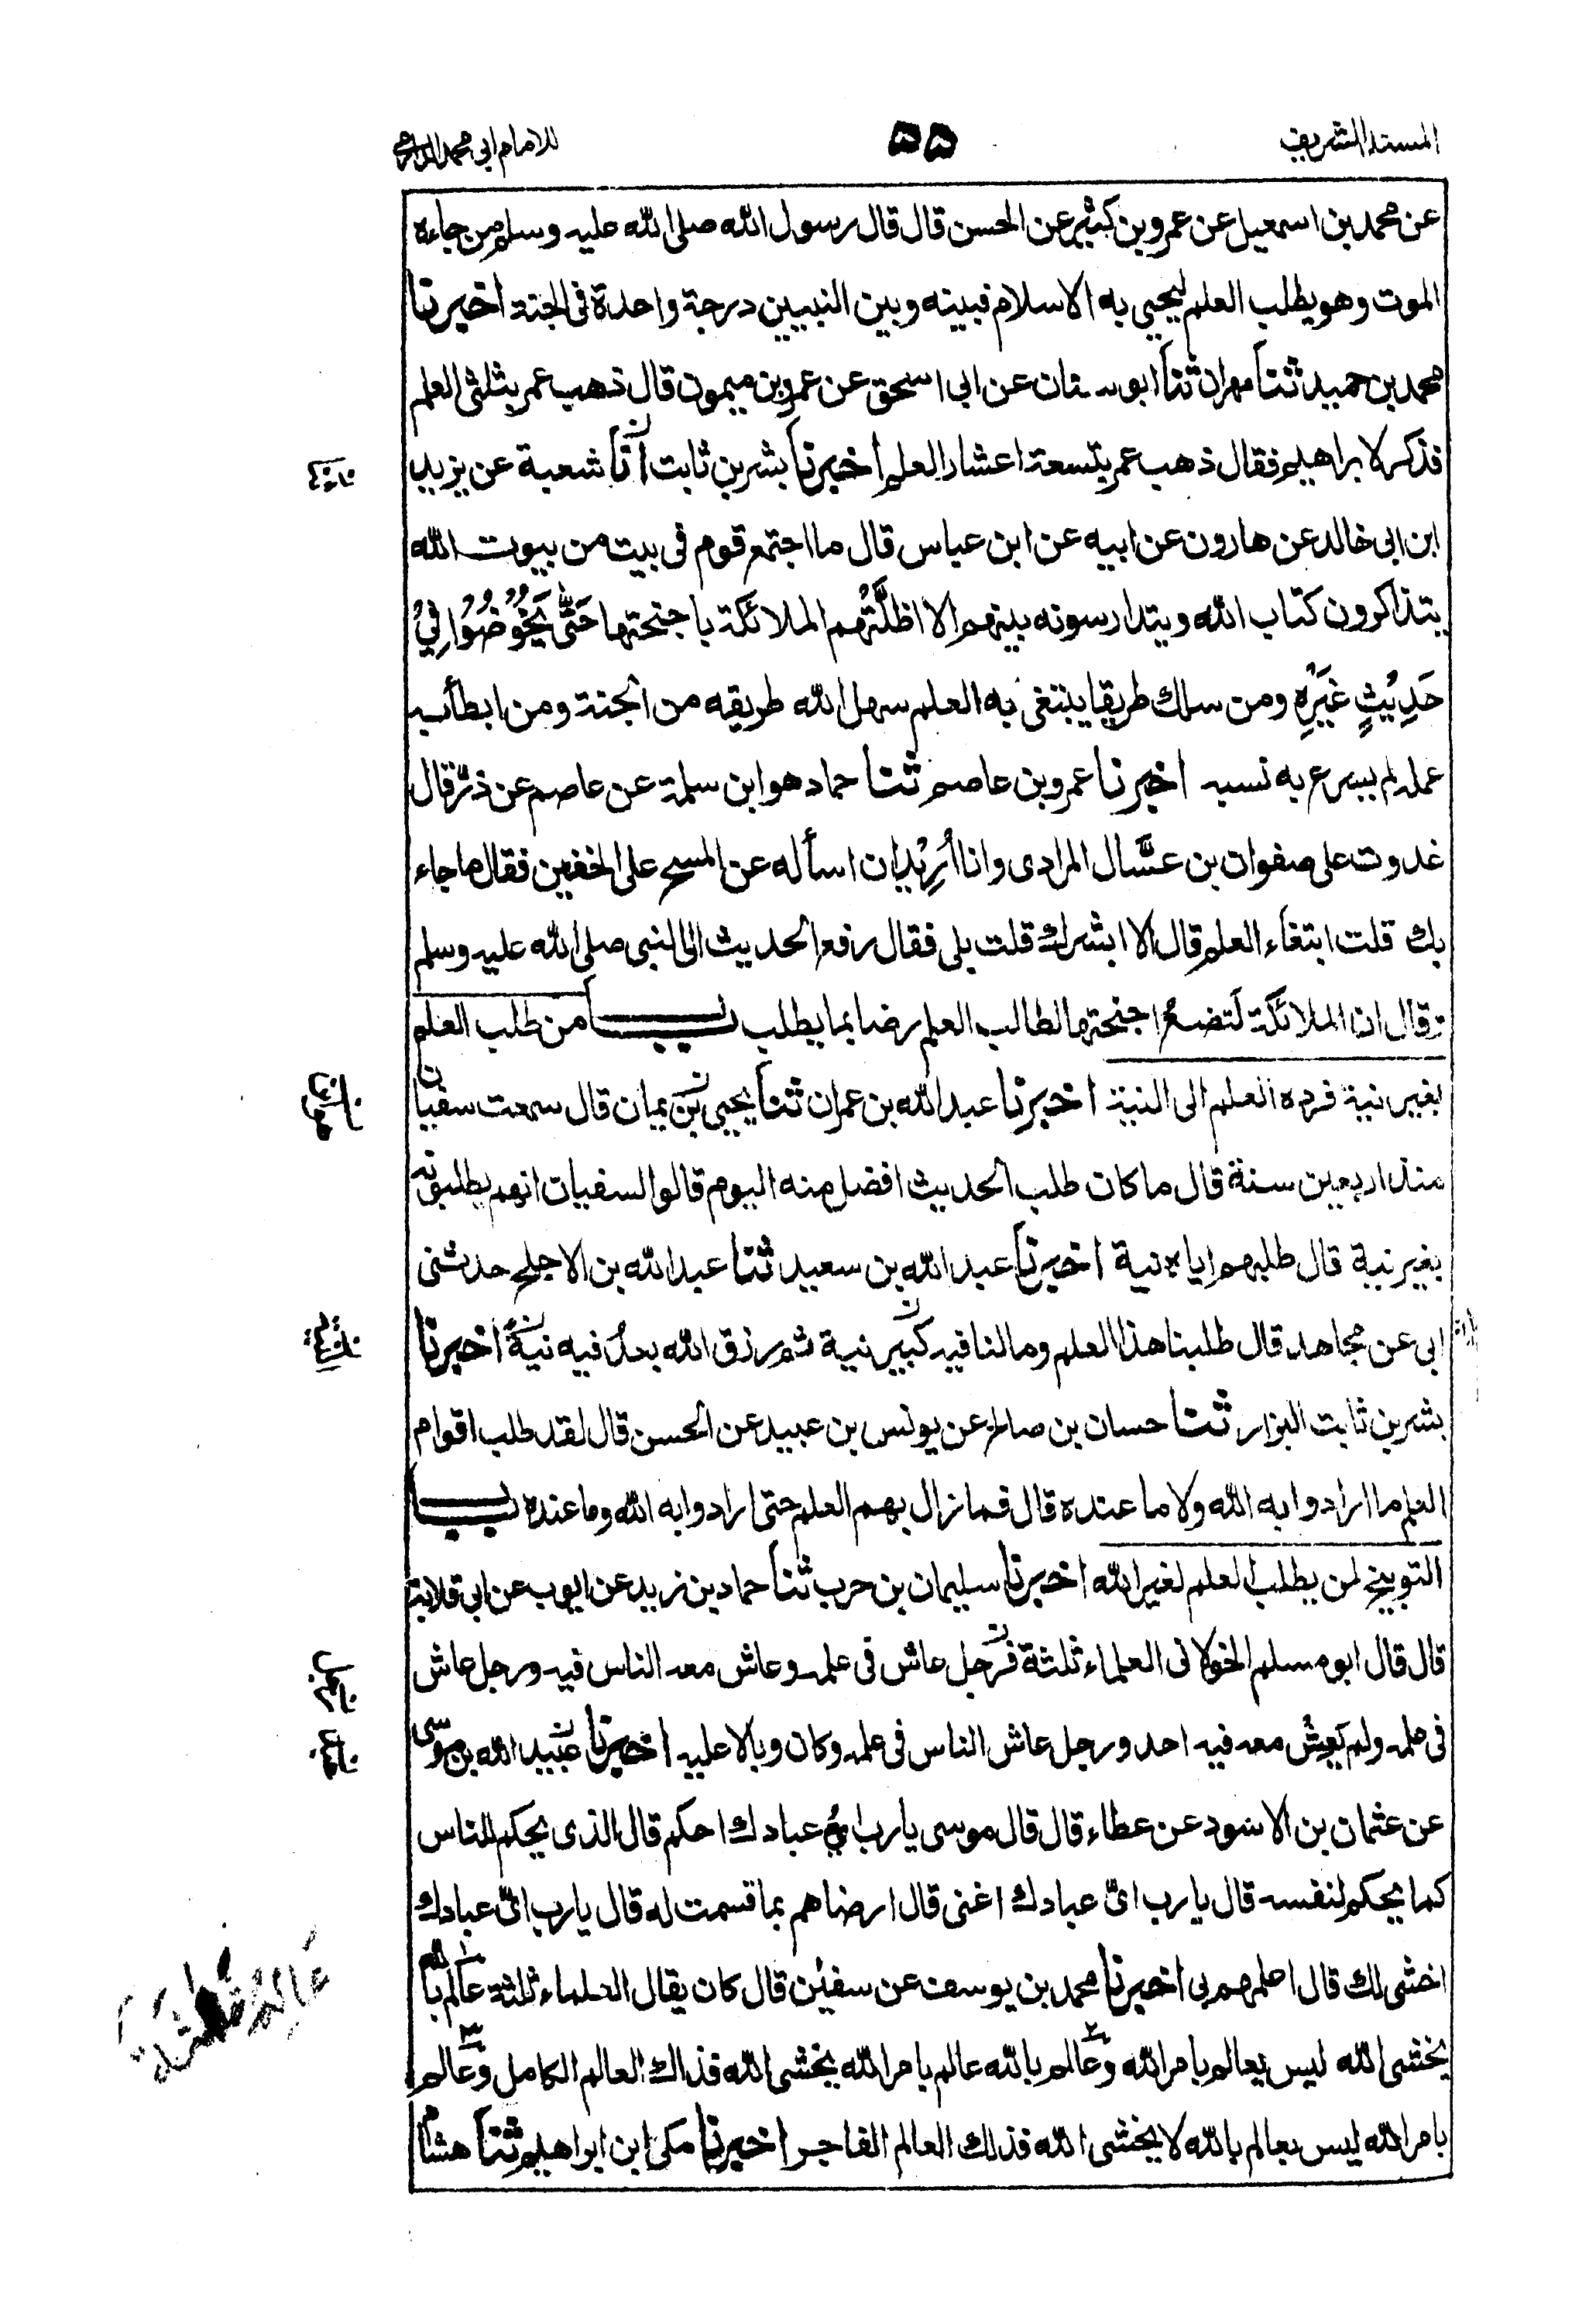 المسند الشريف
۵۵
للامام ابی محمد الدارمی
عن محمد بن اسمعیل عن عمرو بن کثیر عن الحسن قال قال رسول الله صلی الله علیه وسلم من جاءه
الموت وهو یطلب العلم لیحیی به الاسلام فبینه وبین النبیین درجة واحدة فی الجنة اخبرنا
محمد بن حمید ثنا مهران ثنا ابو سنان عن ابی اسحق عن عمرو بن میمون قال ذهب عمر بثلثی العلم
فذکر لابراهیم فقال ذهب عمر بتسعة اعشار العلم اخبرنا بشر بن ثابت انا شعبة عن یزید
ابن ابی خالد عن هارون عن ابیه عن ابن عباس قال ما اجتمع قوم فی بیت من بیوت الله
یتذاکرون کتاب الله ویتدارسونه بینهم الا اظلَّتْهُم الملائکة باجنحتها حَتّٰی یَخُوْضُوْا فِیْ
حَدِیْثٍ غَیْرِهٖ ومن سلك طریقا یبتغی به العلم سهل الله طریقه من الجنة ومن ابطأ به
عمله لم یسرع به نسبه اخبرنا عمرو بن عاصم ثنا حماد هو ابن سلمة عن عاصم عن ذرّ قال
غدوت علی صفوان بن عسَّال المرادی وانا اُرِیْدُ ان اسأله عن المسح علی الخفین فقال ما جاء
بك قلت ابتغاء العلم قال الا ابشرك قلت بلی فقال رفع الحدیث الی النبی صلی الله علیه وسلم
قال ان الملائکة لَتضعُ اجنحتها لطالب العلم رضا بما یطلب باب من طلب العلم
بغیر نیة فرده العلم الی النیة اخبرنا عبد الله بن عمران ثنا یحیی بن یمان قال سمعت سفیان
منذ اربعین سنة قال ما کان طلب الحدیث افضل منه الیوم قالوا لسفیان انهم یطلبونه
بغیر نیة قال طلبهم ایاه نیة اخبرنا عبد الله بن سعید ثنا عبد الله بن الاجلح حدثنی
ابی عن مجاهد قال طلبنا هذا العلم وما لنا فیه کبیر نیة ثم رزق الله بعدُ فیه نیةً اخبرنا
بشر بن ثابت البزار ثنا حسان بن صالح عن یونس بن عبید عن الحسن قال لقد طلب اقوام
العلم ما ارادوا به الله ولا ما عنده قال فما زال بهم العلم حتی ارادوا به الله وما عنده باب
التوبیخ لمن یطلب العلم لغیر الله اخبرنا سلیمان بن حرب ثنا حماد بن زید عن ایوب عن ابی قلابة
قال قال ابو مسلم الخولانی العلماء ثلثة فرجل عاش فی علمه وعاش معه الناس فیه ورجل عاش
فی علمه ولم یَعِش معه فیه احد ورجل عاش الناس فی علمه وکان وبالا علیه اخبرنا عبید الله بن موسی
عن عثمان بن الاسود عن عطاء قال قال موسی یا رب ای عبادك احکم قال الذی یحکم للناس
کما یحکم لنفسه قال یا رب ایّ عبادك اغنی قال ارضاهم بما قسمت له قال یا رب ایّ عبادك
اخشی لك قال اعلمهم بی اخبرنا محمد بن یوسف عن سفیٰن قال کان یقال العلماء ثلثة عالم بالله
یخشی الله لیس بعالم بامر الله وعالم بالله عالم بامر الله یخشی الله فذاك العالم الکامل وعالم
بامر الله لیس بعالم بالله لا یخشی الله فذلك العالم الفاجر اخبرنا مکی ابن ابراهیم ثنا هشام